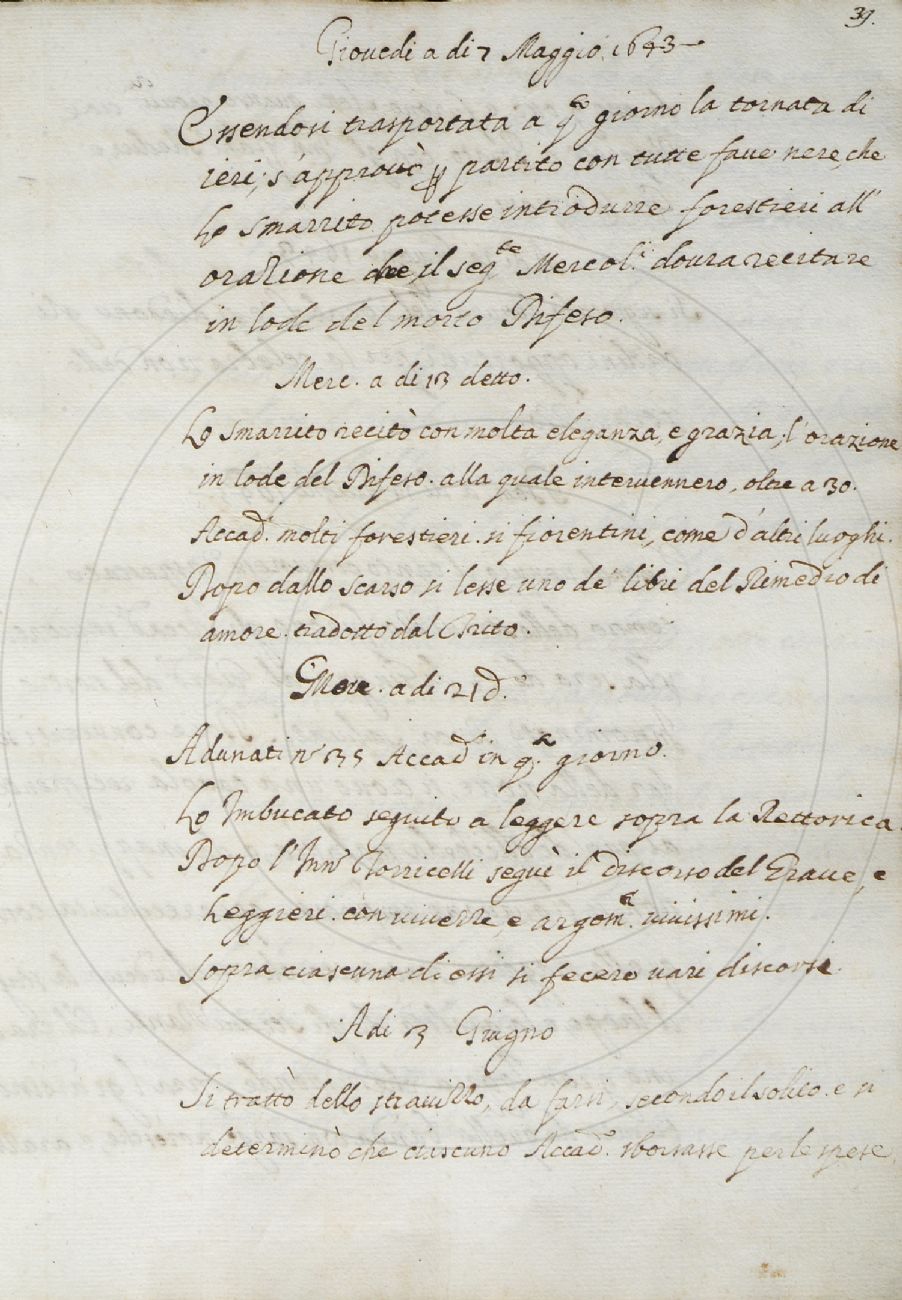 39.
Giovedi a di 7 Maggio 1643
Essendosi trasportata a q.o giorno la tornata di
ieri, s'approvò p partito con tutte fave nere, che
Lo Smarrito potesse introdurre forestieri all'
orazione che il seg.te Mercol. dovra recitare
in lode del morto Rifeso.
Merc. a di 13 detto.
Lo Smarrito recitò con molta eleganza, e grazia, l'orazione
in lode del Rifeso. alla quale intervennero, oltre a 30.
Accad. molti forestieri. si fiorentini, come d'altri luoghi.
Dopo dallo Scarso si lesse uno de' libri del Rimedio di
amore. tradotto dal Trito.
Merc. a di 21 d.o
Adunati n.o 35 Accad. in q.o giorno.
Lo Imbucato seguito a leggere sopra la Rettorica.
Dopo l'Inn.o Torricelli seguì il discorso del Grave, e
Leggieri. con vivezze, e argom.ti vivissimi.
Sopra ciascuna di essi si fecero vari discorsi.
A di 3 Giugno
Si trattò dello stravizzo, da farsi, secondo il solito. e si
determinò che ciascuno Accad. sborsasse per le spese